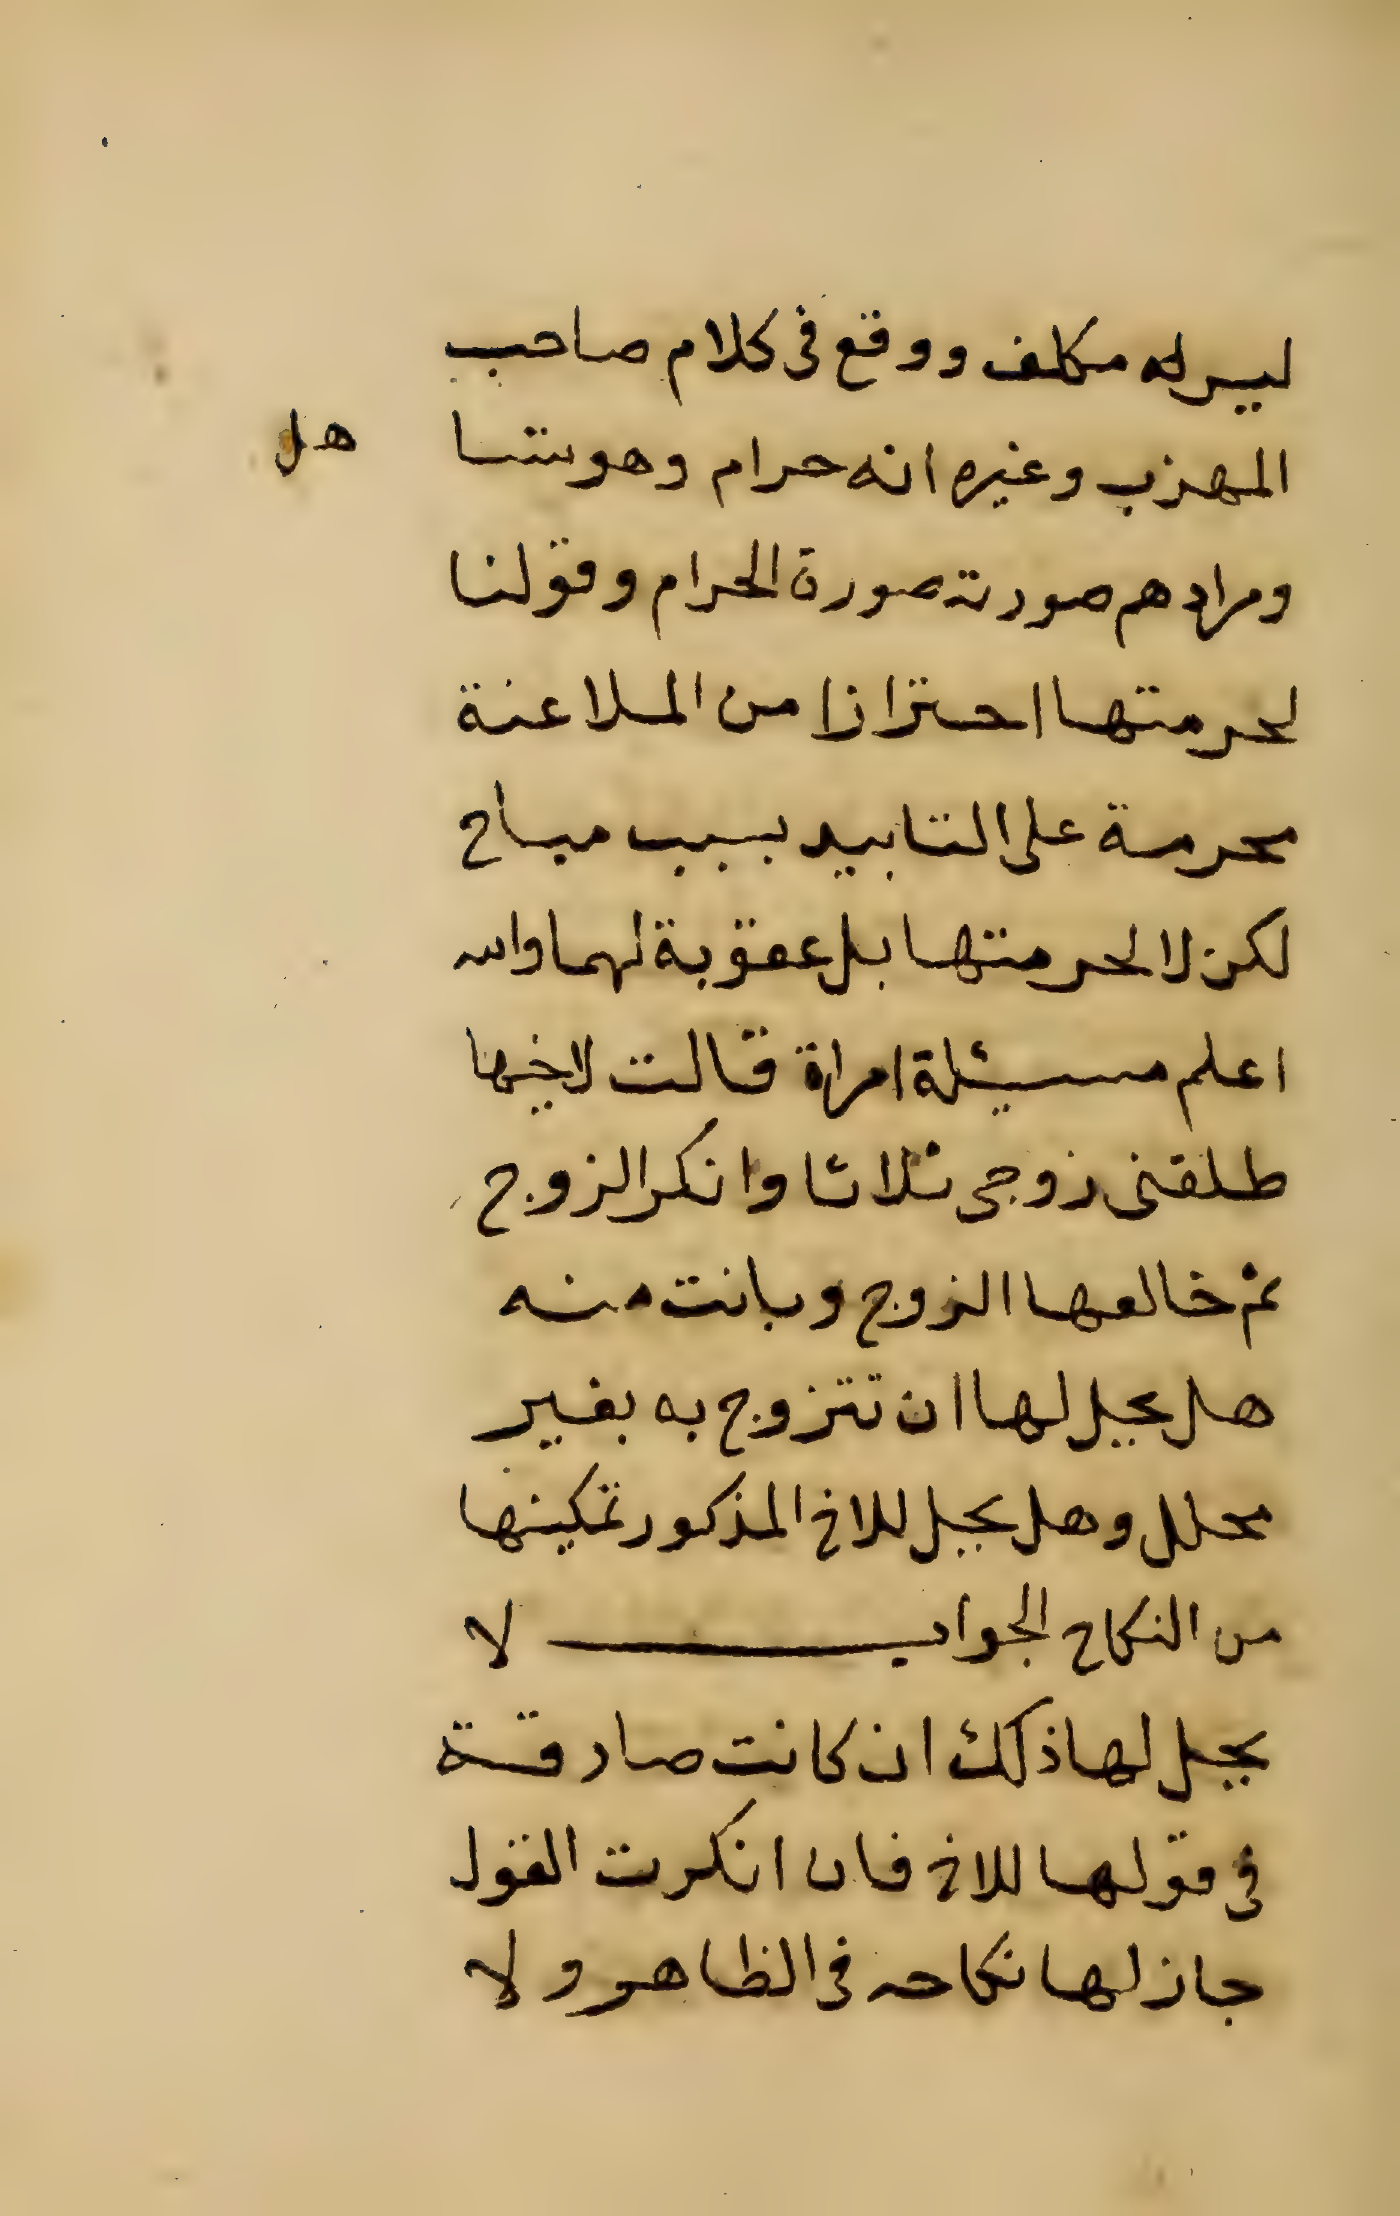 ليس له مكلف ووقع في كلام صاحب
المهزب وغيره انه حرام وهو شا
هل
ومرادهم صورته صورة الحرام وقولنا
لحرمتها احترازا من الملاعنة
محرمة على التابيد بسبب مباح
لكن لا لحرمتها بل عقوبة لهما والله
اعلم مسئلة امراة قالت لاخيها
طلقني زوجي ثلاثا وانكر الزوج
ثم خالعها الزوج وبانت منه
هل يحل لها ان تتزوج به بغير
محلل وهل يحل للاخ المذكور تمكينها
من النكاح الجواب لا
يحل لها ذلك ان كانت صادقة
في قولها للاخ فان انكرت القول
جاز لها نكاحه في الظاهر ولا